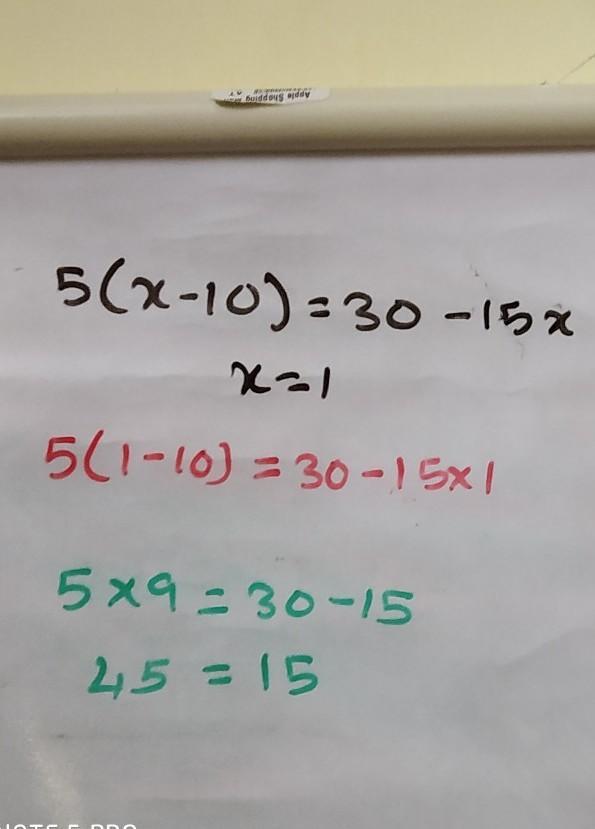 Apple Shopping
5(x-10)=30-15x
x=1
5(1-10)=30-15x1
5x9=30-15
45=15